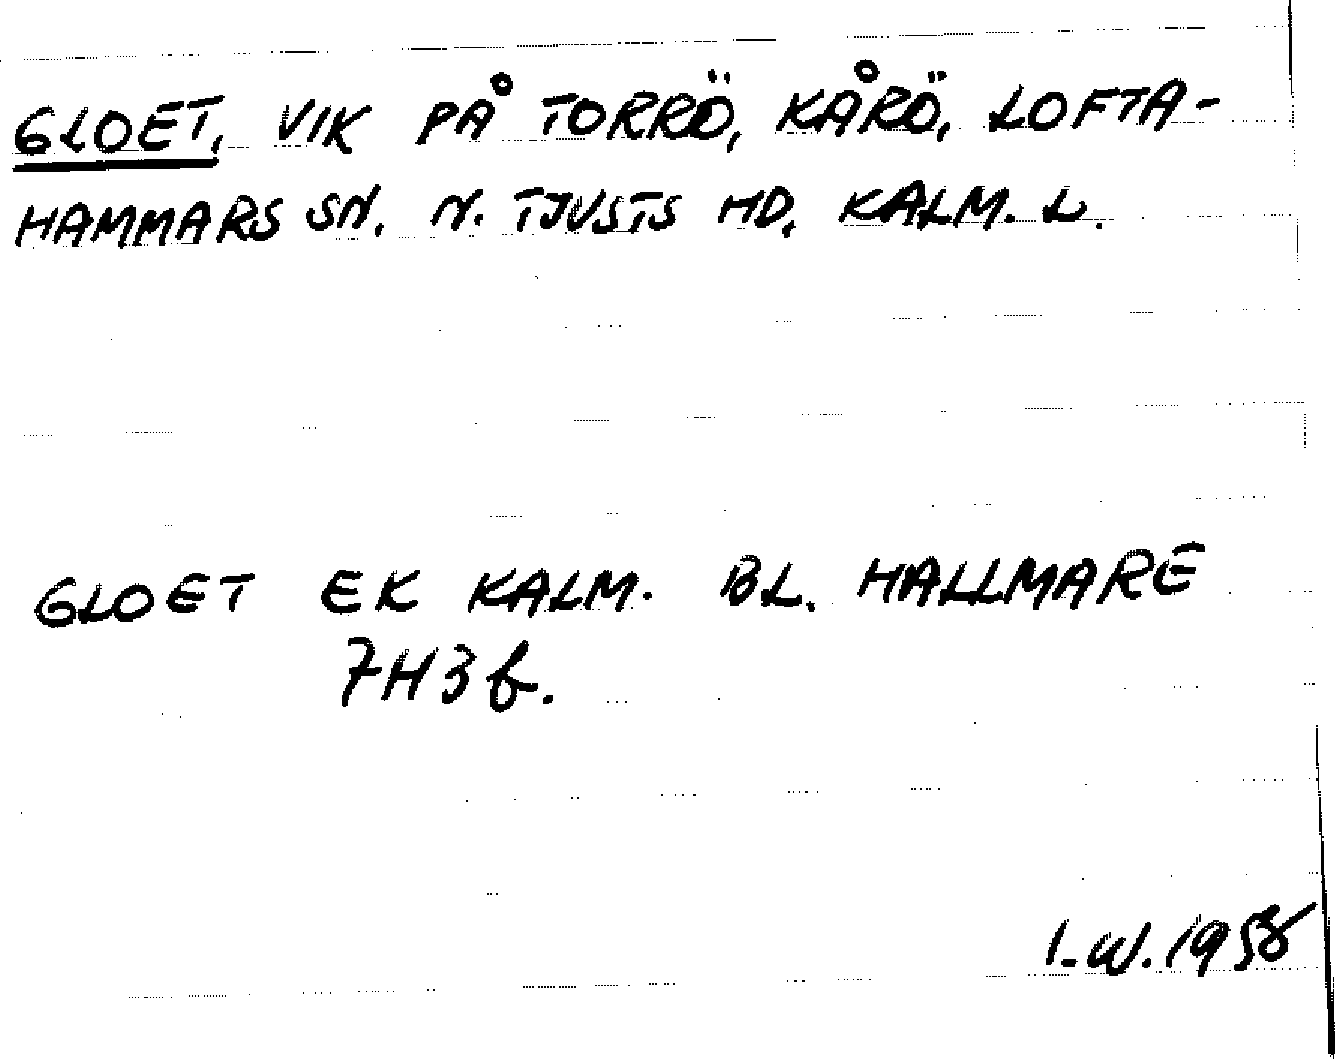 GLOET, VIK PÅ TORRÖ, KÅRÖ, LOFTA-
HAMMARS SN. N. TJUSTS HD. KALM. L.
GLOET EK KALM. BL. HALLMARE
7H3f.
I.W. 1958